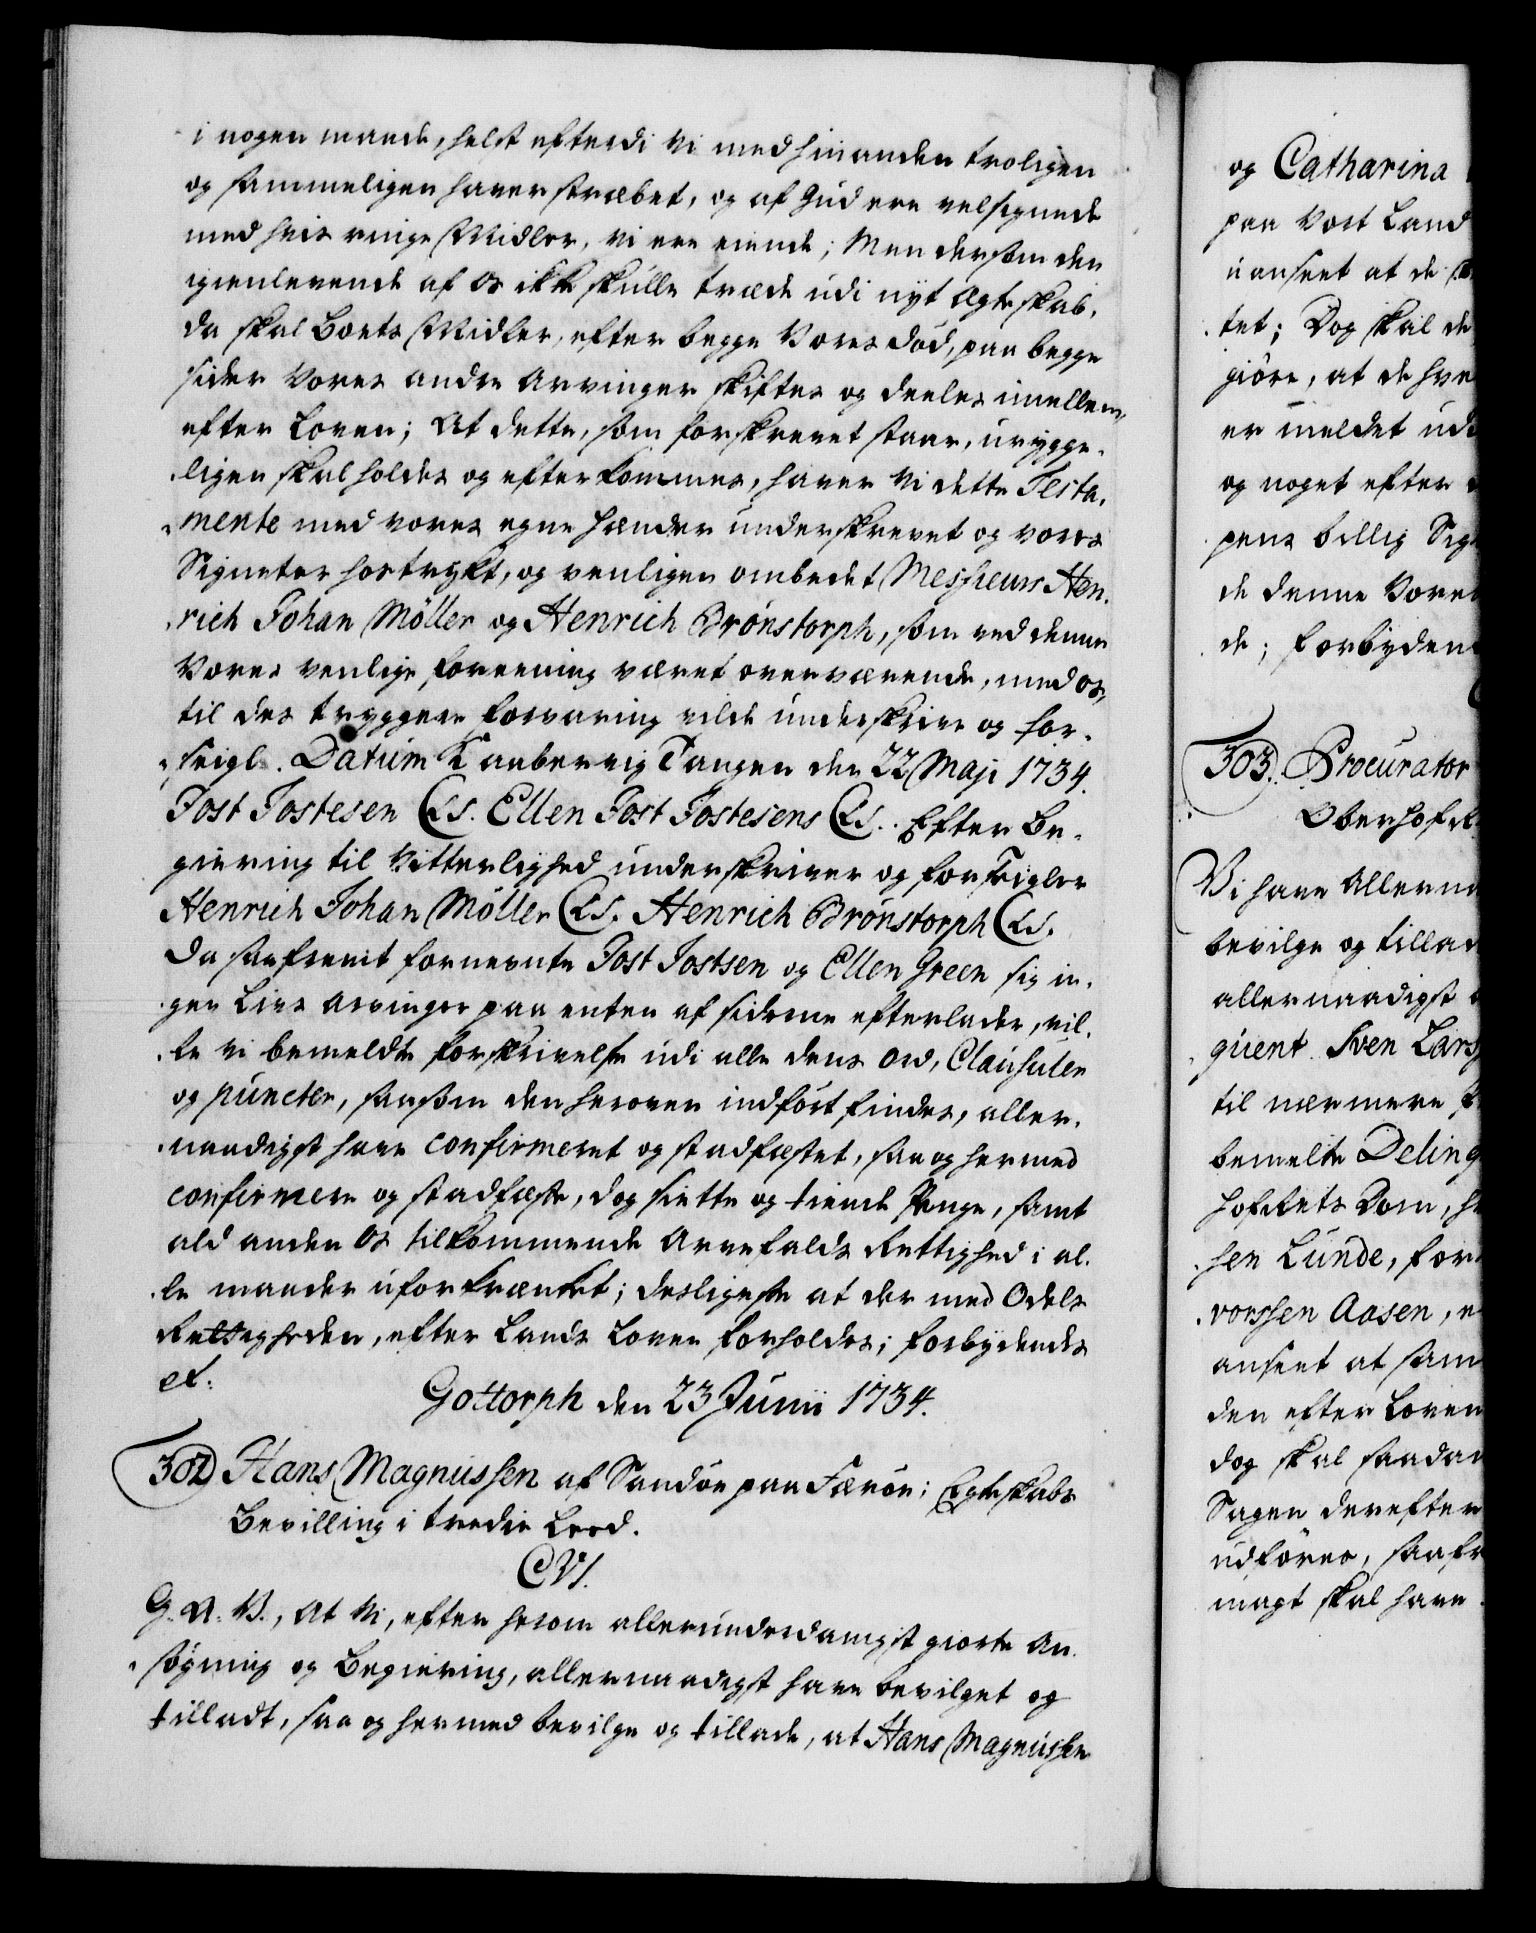 i nogen maade, helst efterdi Vi med hinanden troligen
og sammeligen haver stræbet, og af Gud ere velsignede
med hvis ringe Midler, vi ere eiende; Men dersom den
igienlevende af os ikke skulle træde udi nyt Ægteskab,
da skal Boets Midler, efter begge Vores død, paa begge
sider Vores andre Arvinger skiftes og deeles imellem,
efter Loven; At dette, som forskrevet staar, urygge-
ligen skal holdes og efterkommes, haver Vi dette Testa-
mente med vores egne Hænder underskrevet og vores
Signeter hostrykt, og venligen ombedet Messieurs Hen-
rich Johan Möller og Henrich Brönstorph, som ved denne
Vores venlige foreening været overværende, med os,
til des tryggere forvaring vilde underskrive og for-
seigle. Datum Kaaberviig Tangen den 22 Maji 1734.
Jost Jostesen (LS. Ellen Jost Jostesens (LS. Efter Be-
giering til Vitterlighed underskriver og forseigler
Henrich Johan Möller (LS. Henrich Brönstorph (LS.
Da saafremt fornevnte Jost Jostsen og Ellen Green sig in-
gen Livs Arvinger paa enten af siderne efterlader, vil-
le vi bemeldte forskrivelse udi alle dens Ord, Clausuler
og puncter, saasom den herover indført findes, aller-
naadigst have confirmeret og stadfæstet, saa og hermed
confirmere og stadfæste, dog siette og tiende Penge, samt
ald anden Os tilkommende Arvefalds Rettighed i al-
le maader uforkrænket; desligeste at der med Odels
Rettigheden, efter Lands Loven forholdes; forbydendes
et.
Gottorph den 23 Junii 1734.
302 Hans Magnussen af Sandøe paa Færøe; Egteskabs
Bevilling i tredie Leed.
CVI.
G. A. V., At Vi, efter herom allerunderdanigst giorte An-
søgning og Begiering, allernaadigst have bevilget og
tilladt, saa og hermed bevilge og tillade, at Hans Magnussen
og Catharina
paa Vort Land
uanseet at de
tet; Dog skal de
giöre, at de hve
er meldet udi
og noget efter
pens billig Sig
de denne Vores
de; forbydend
303. Procurator
Oberhofret
Vi have Allerna
bevilge og tillad
allernaadigst
quent Sven Lars
til nærmere
bemelte Deling
hofRets Dom,
sen Lunde, for
vorssen Aasen,
anseet at sam
den efter Loven
dog skal saadan
Sagen derefter
udføres, saafr
magt skal have